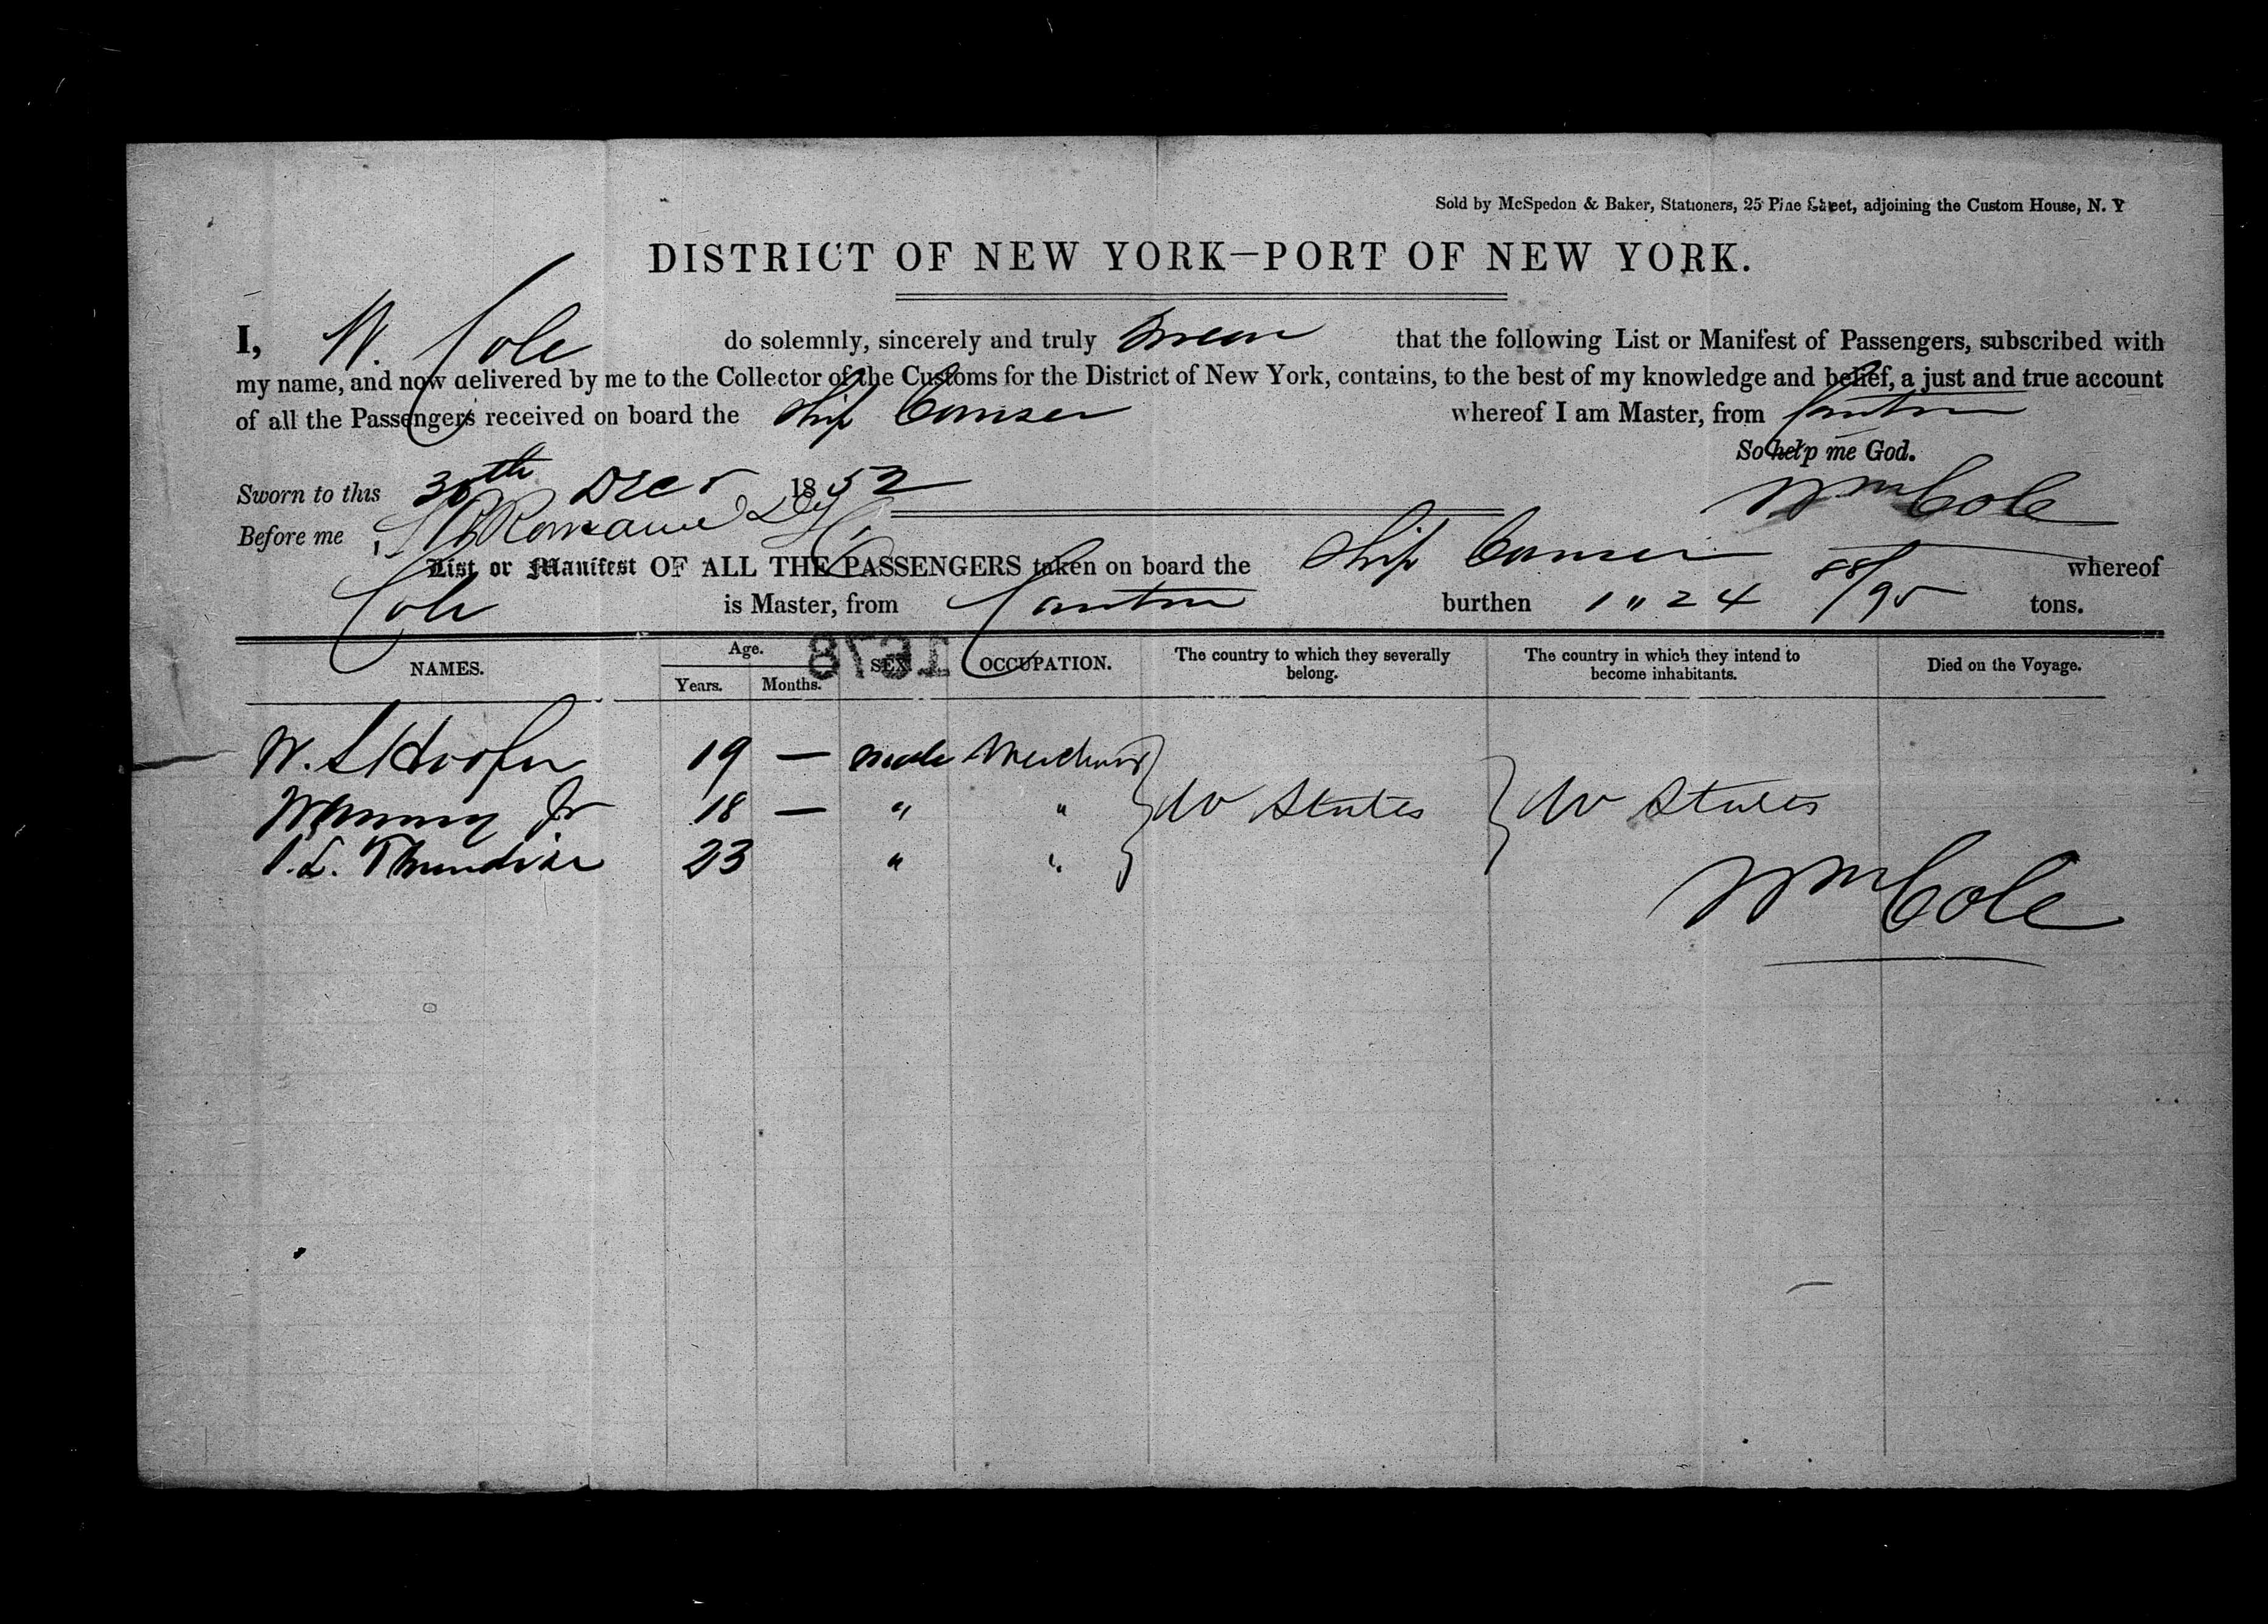 Sold by McSpedon & Baker, Stationers, 25 Pine Street, adjoining the Custom House, N. Y
DISTRICT OF NEW YORK—PORT OF NEW YORK.
I, W. Cole do solemnly, sincerely and truly swear that the following List or Manifest of Passengers, subscribed with
my name, and now delivered by me to the Collector of the Customs for the District of New York, contains, to the best of my knowledge and belief, a just and true account
of all the Passengers received on board the Ship whereof I am Master, from Canton
So help me God.
Sworn to this 30th Dec 1852 Wm Cole
Before me
List or Manifest OF ALL THE PASSENGERS taken on board the Ship whereof
Cole is Master, from Canton burthen 1"24 88/95 tons.
1578
NAMES. Age. Years. Months. SEX OCCUPATION. The country to which they severally belong. The country in which they intend to become inhabitants. Died on the Voyage.
W. S Hooper 19 — male Merchant
Jr 18 — " " U States U States
23 " "
Wm Cole